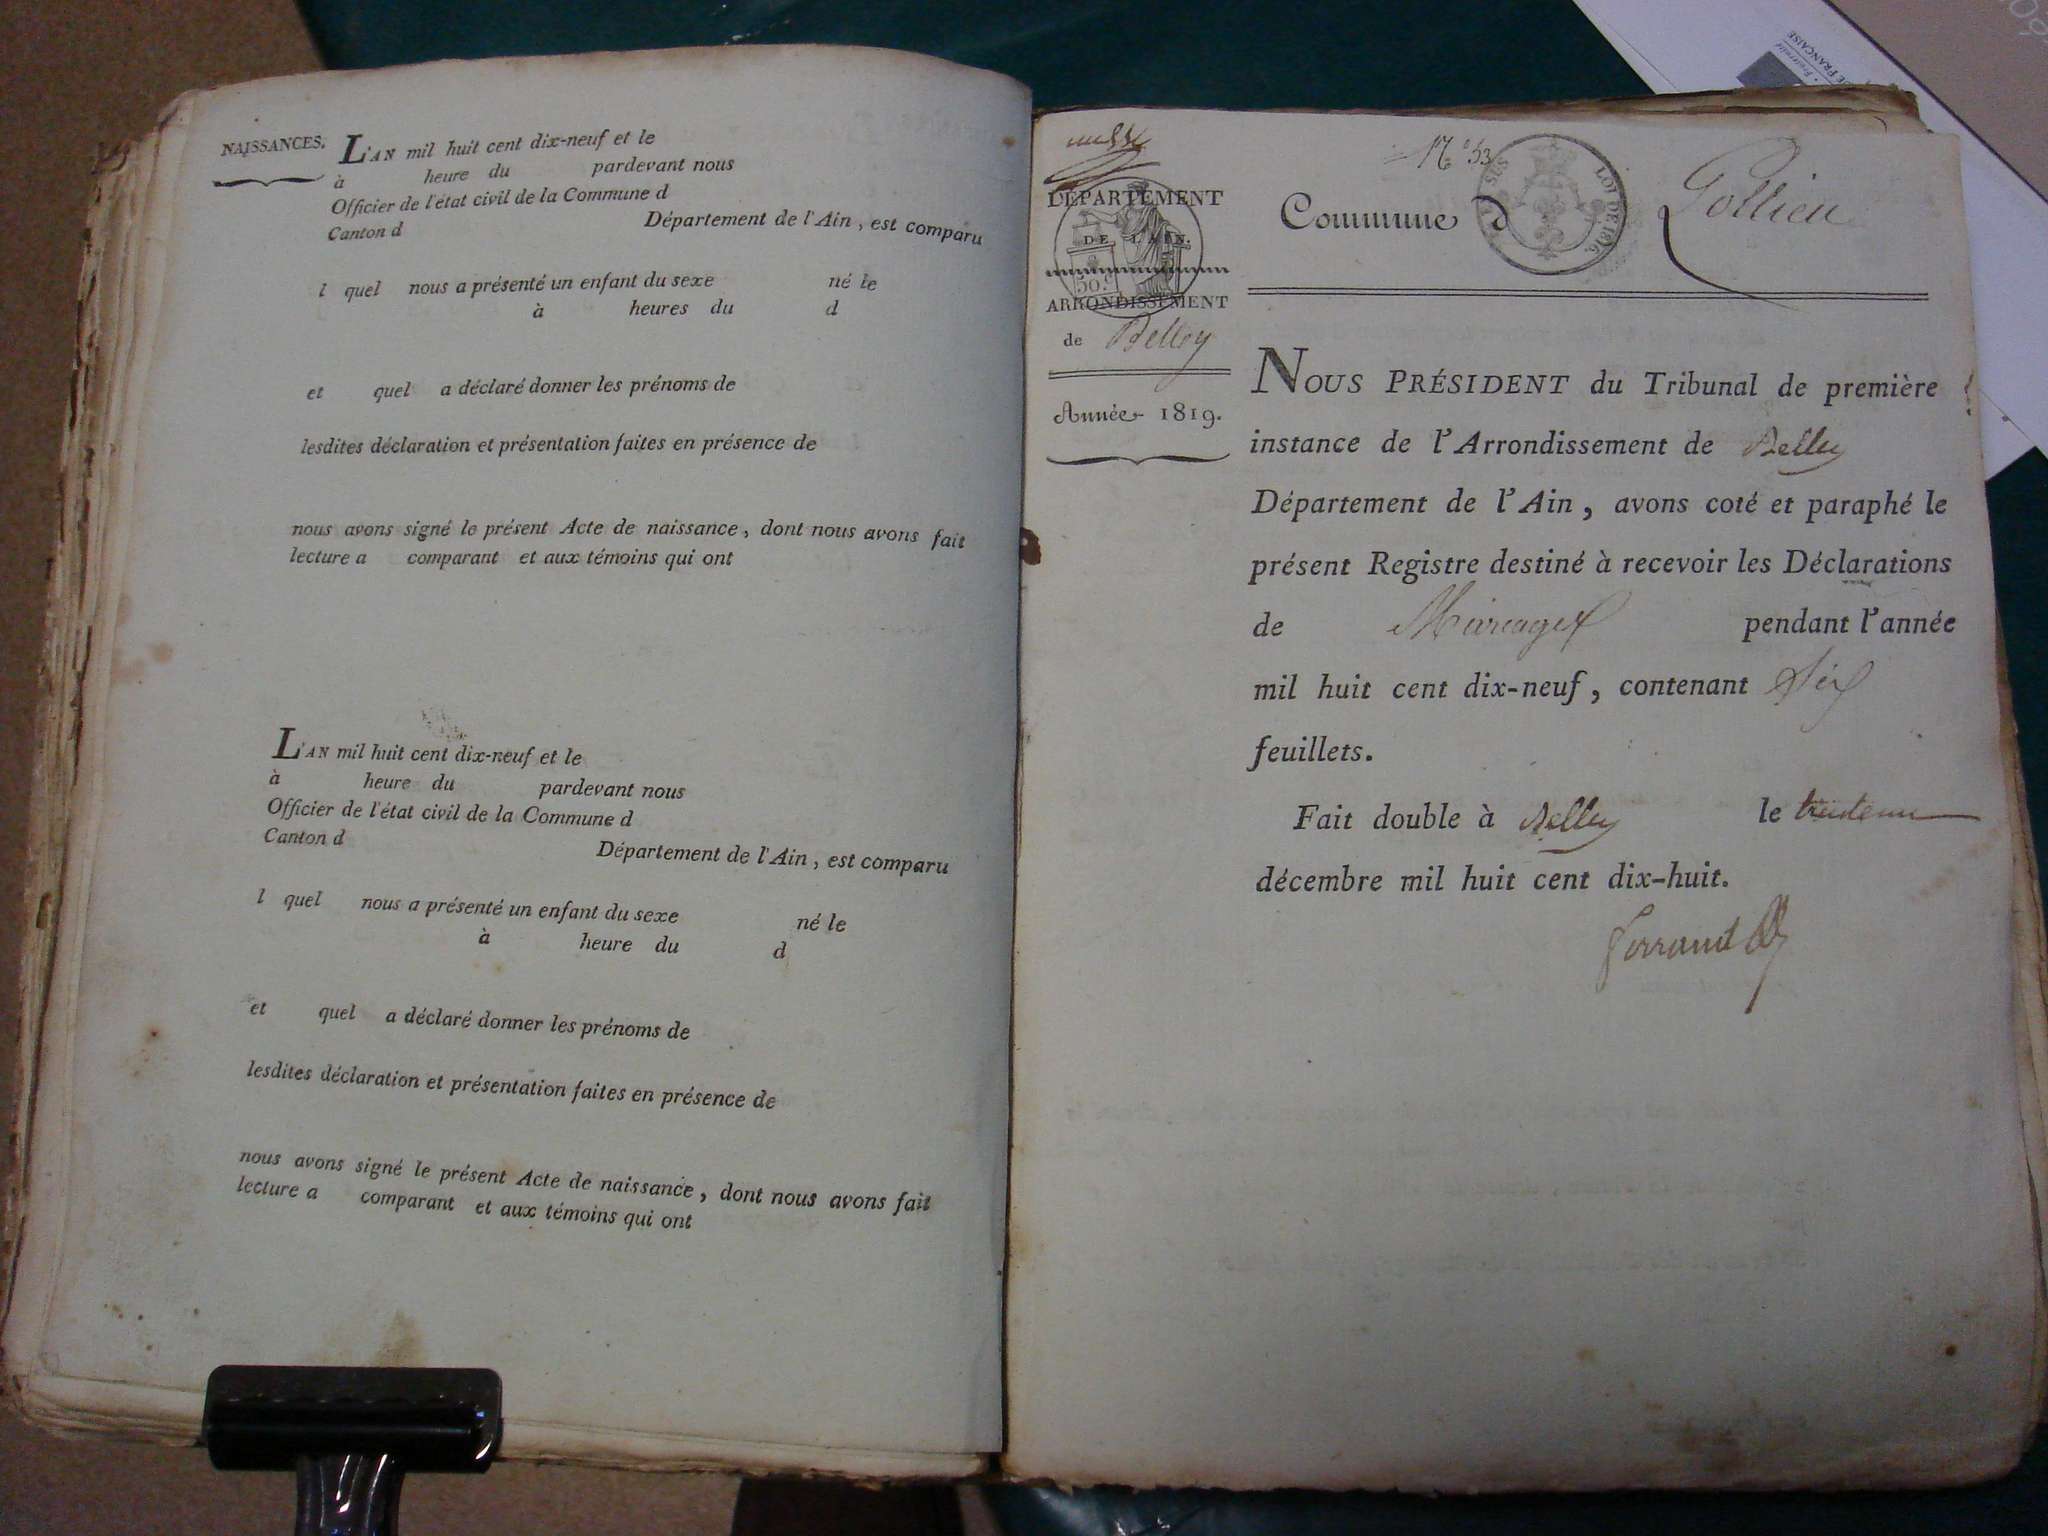 NAISSANCES.
L'AN mil huit cent dix-neuf et le
à heure du pardevant nous
Officier de l'état civil de la Commune d
Canton d Département de l'Ain, est comparu
l quel nous a présenté un enfant du sexe né le
à heures du d
et quel a déclaré donner les prénoms de
lesdites déclaration et présentation faites en présence de
nous avons signé le présent Acte de naissance, dont nous avons fait
lecture a comparant et aux témoins qui ont
L'AN mil huit cent dix-neuf et le
à heure du pardevant nous
Officier de l'état civil de la Commune d
Canton d Département de l'Ain, est comparu
l quel nous a présenté un enfant du sexe né le
à heure du d
et quel a déclaré donner les prénoms de
lesdites déclaration et présentation faites en présence de
nous avons signé le présent Acte de naissance, dont nous avons fait
lecture a comparant et aux témoins qui ont
N° 53
DÉPARTEMENT
DE L'AIN.
50
ARRONDISSEMENT
de Belley
Année 1819.
LOI DE 1816.
Commune d Pollieu
NOUS PRÉSIDENT du Tribunal de première
instance de l'Arrondissement de Belley
Département de l'Ain, avons coté et paraphé le
présent Registre destiné à recevoir les Déclarations
de Mariages pendant l'année
mil huit cent dix-neuf, contenant Six
feuillets.
Fait double à Belley le trente un
décembre mil huit cent dix-huit.
DE FRANÇAISE